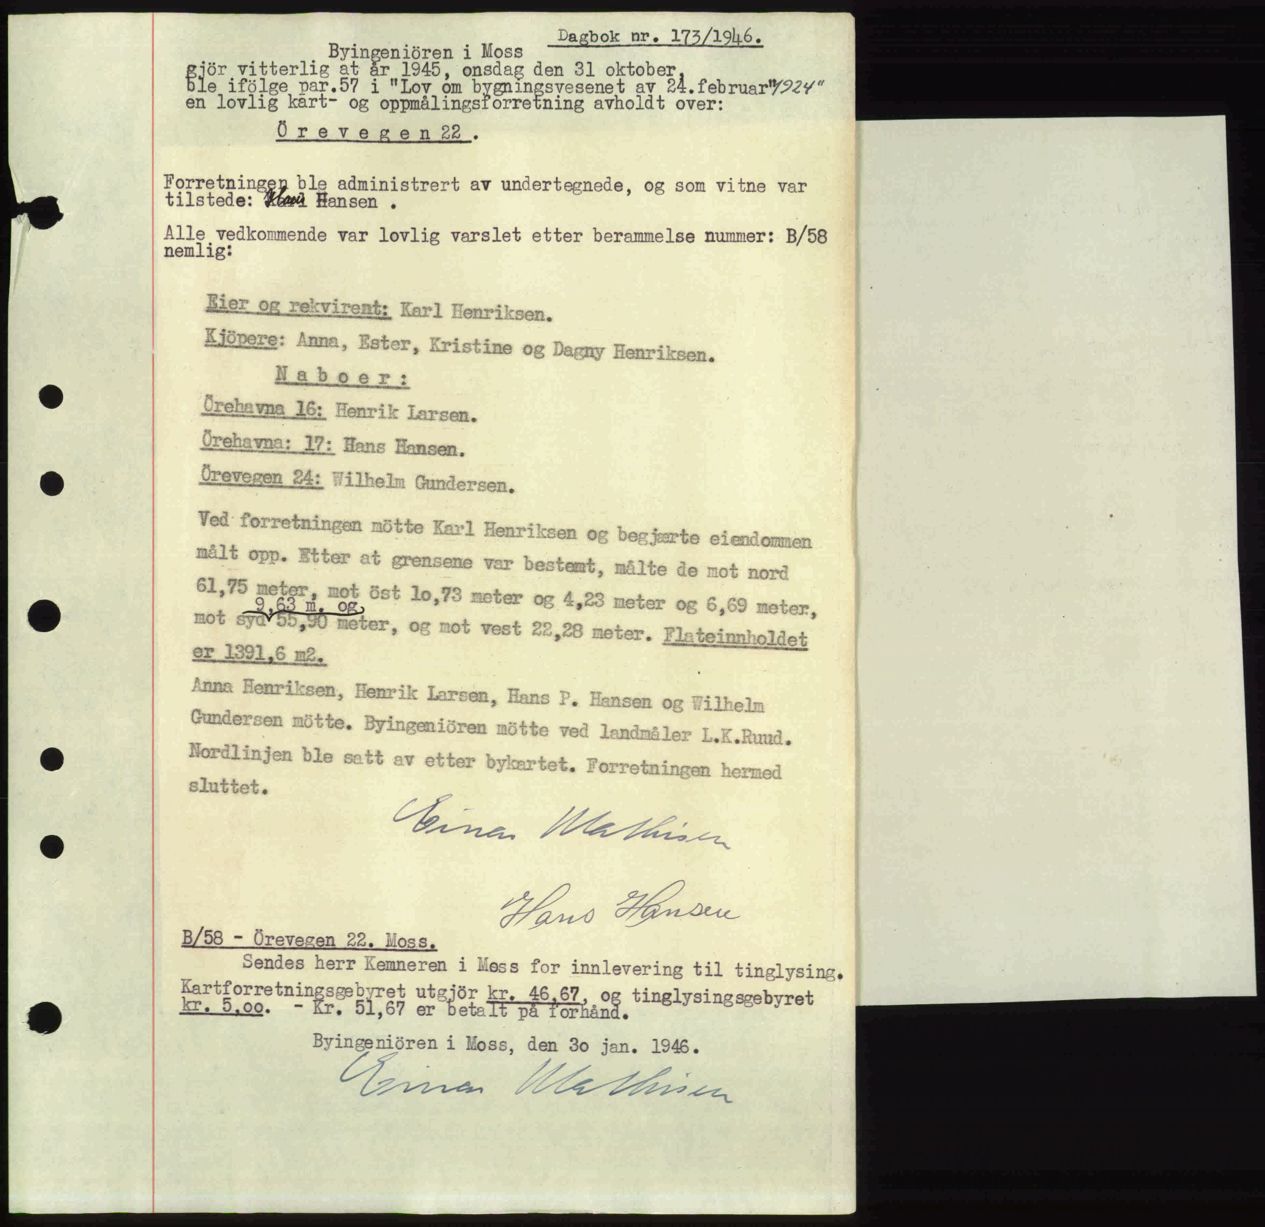 Dagbok nr. 173/1946.
Byingeniören i Moss
gjör vitterlig at år 1945, onsdag den 31 oktober,
ble ifölge par.57 i "Lov om bygningsvesenet av 24.februar" 1924"
en lovlig kart- og oppmålingsforretning avholdt over:
Örevegen 22.
Forretningen ble administrert av undertegnede, og som vitne var
tilstede: Hans Hansen .
Alle vedkommende var lovlig varslet etter berammelse nummer: B/58
nemlig:
Eier og rekvirent: Karl Henriksen.
Kjöpere: Anna, Ester, Kristine og Dagny Henriksen.
Naboer:
Örehavna 16: Henrik Larsen.
Örehavna: 17: Hans Hansen.
Örevegen 24: Wilhelm Gundersen.
Ved forretningen mötte Karl Henriksen og begjærte eiendommen
målt opp. Etter at grensene var bestemt, målte de mot nord
61,75 meter, mot öst 10,73 meter og 4,23 meter og 6,69 meter,
9,63 m. og
mot syd 55,90 meter, og mot vest 22,28 meter. Flateinnholdet
er 1391,6 m2.
Anna Henriksen, Henrik Larsen, Hans P. Hansen og Wilhelm
Gundersen mötte. Byingeniören mötte ved landmåler L.K.Ruud.
Nordlinjen ble satt av etter bykartet. Forretningen hermed
sluttet.
Einar Mathisen
Hans Hansen
B/58 - Örevegen 22. Moss.
Sendes herr Kemneren i Moss for innlevering til tinglysing.
Kartforretningsgebyret utgjör kr. 46,67, og tinglysingsgebyret
kr. 5,00. - Kr. 51,67 er betalt på forhånd.
Byingeniören i Moss, den 30 jan. 1946.
Einar Mathisen